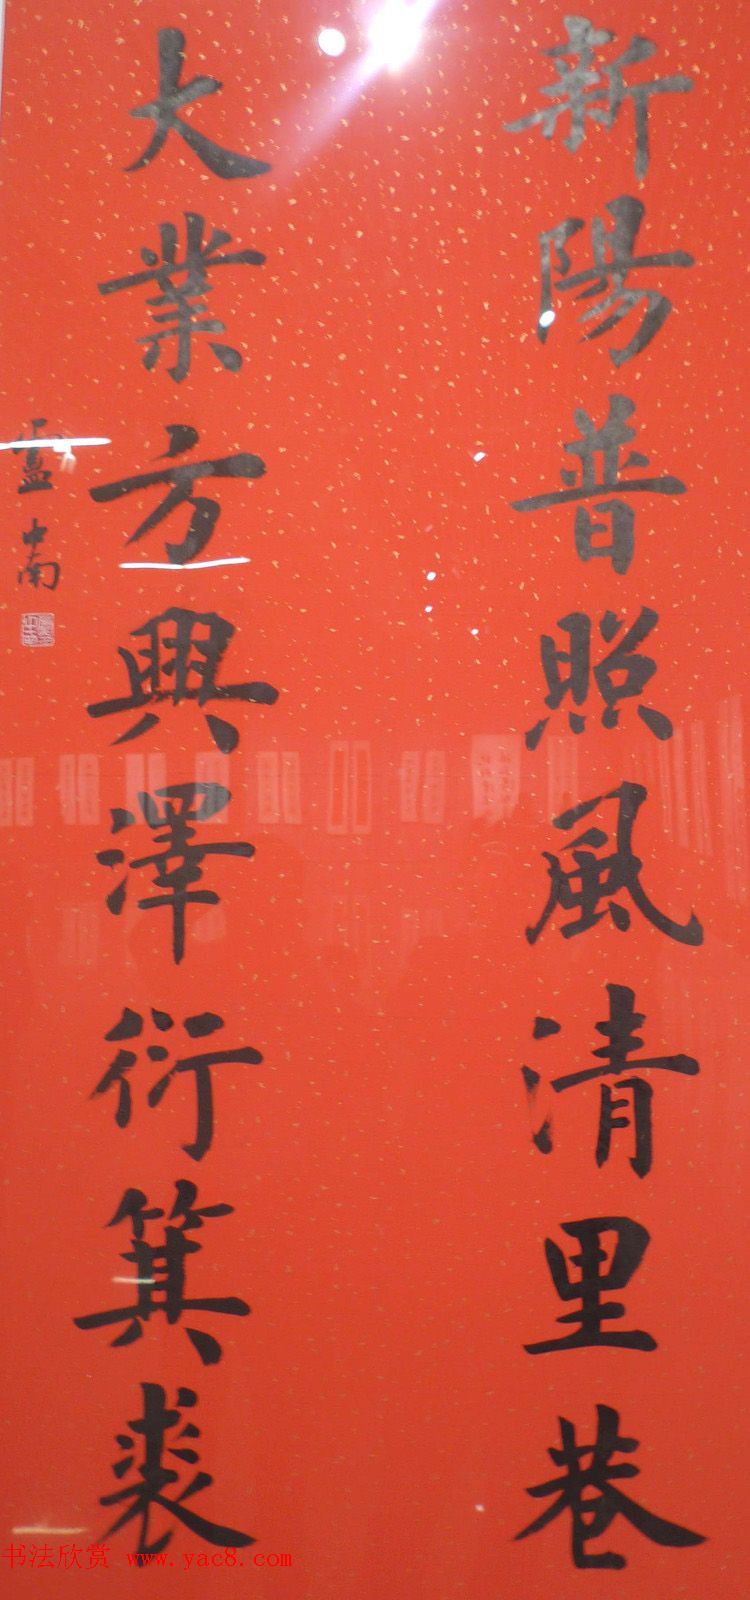 新陽普照風清里巷
大業方興澤衍箕裘
盧中南
书法欣赏 www.yac8.com